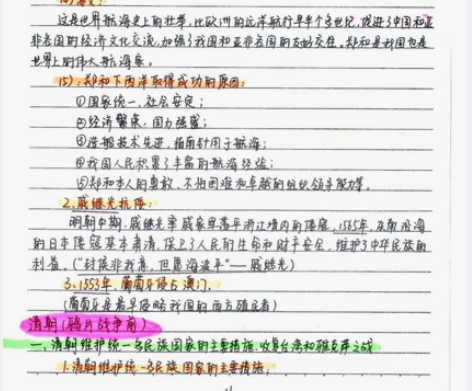 这是世界航海史上的壮举,比欧洲的远洋航行早半个多世纪,促进了中国和亚
非各国的经济文化交流,加强了我国和亚非各国的友好交往。郑和是我国也是
世界上的伟大航海家。
(5):郑和下西洋取得成功的原因:
①国家统一,社会安定;
②经济繁荣,国力强盛;
③造船技术先进,指南针用于航海;
④我国人民积累了丰富的航海经验;
⑤郑和本人的勇敢、不怕困难和卓越的组织领导能力等。
2.戚继光抗倭:
明朝中期,戚继光率戚家军荡平浙江境内的倭寇,1565年,东南沿海
的日本倭寇基本肃清,保卫了人民的生命和财产安全,维护了中华民族的
利益。("封侯非我意,但愿海波平"——戚继光)
3.1553年,葡萄牙侵占澳门。
(葡萄牙是最早侵略我国的西方殖民者)
清朝(鸦片战争前)
一、清朝维护统一多民族国家的主要措施、收复台湾和雅克萨之战
1.清朝维护统一多民族国家的主要措施。